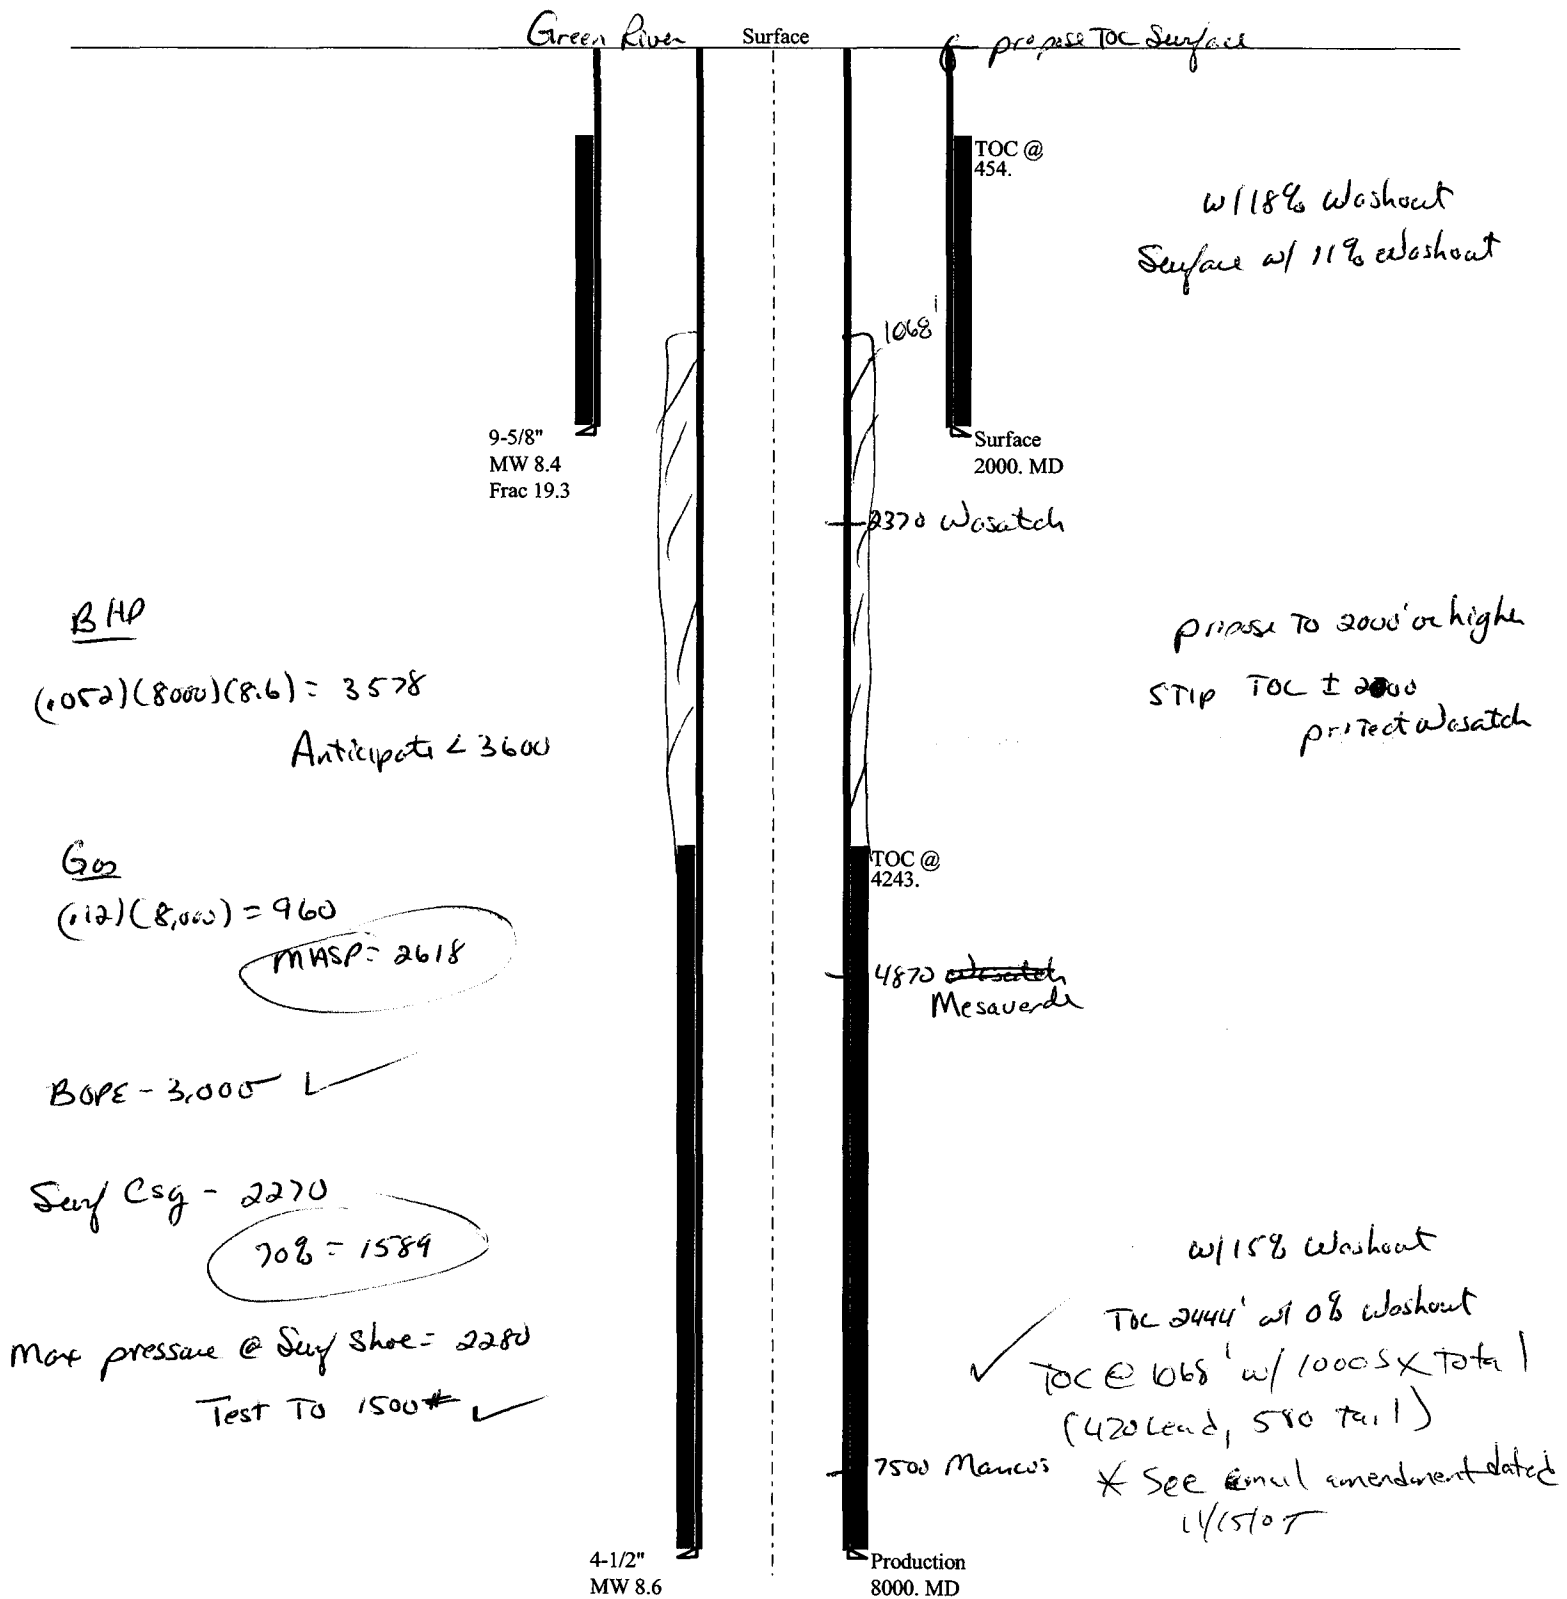 Green River Surface propose TOC Surface
TOC @
454.
w/ 18% Washout
Surface w/ 11% Washout
1068'
9-5/8"
MW 8.4
Frac 19.3
Surface
2000. MD
2370 Wasatch
BHP
(.052)(8000)(8.6) = 3578
Anticipate < 3600
propose TO 2000' or higher
STIP TOC ± 2000
protect Wasatch
Gas
(.12)(8,000) = 960
MASP = 2618
TOC @
4243.
4870 Wasatch
Mesaverde
BOPE - 3,000 ✓
Surf Csg - 2270
70% = 1589
Max pressure @ Surf Shoe = 2280
Test To 1500# ✓
w/ 15% Washout
TOC 2444' w/ 0% Washout
✓ TOC @ 1068' w/ 1000 SX Total
(420 Lead, 580 Tail)
7500 Mancos
* See email amendment dated
4-1/2"
MW 8.6
Production
8000. MD